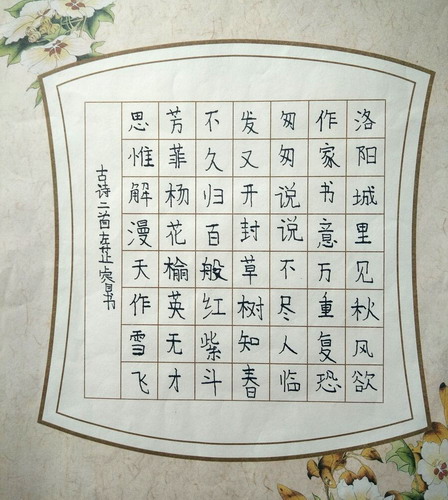 洛阳城里见秋风欲
作家书意万重复恐
匆匆说说不尽人临
发又开封草树知春
不久归百般红紫斗
芳菲杨花榆英无才
思惟解漫天作雪飞
古诗二首左芷书